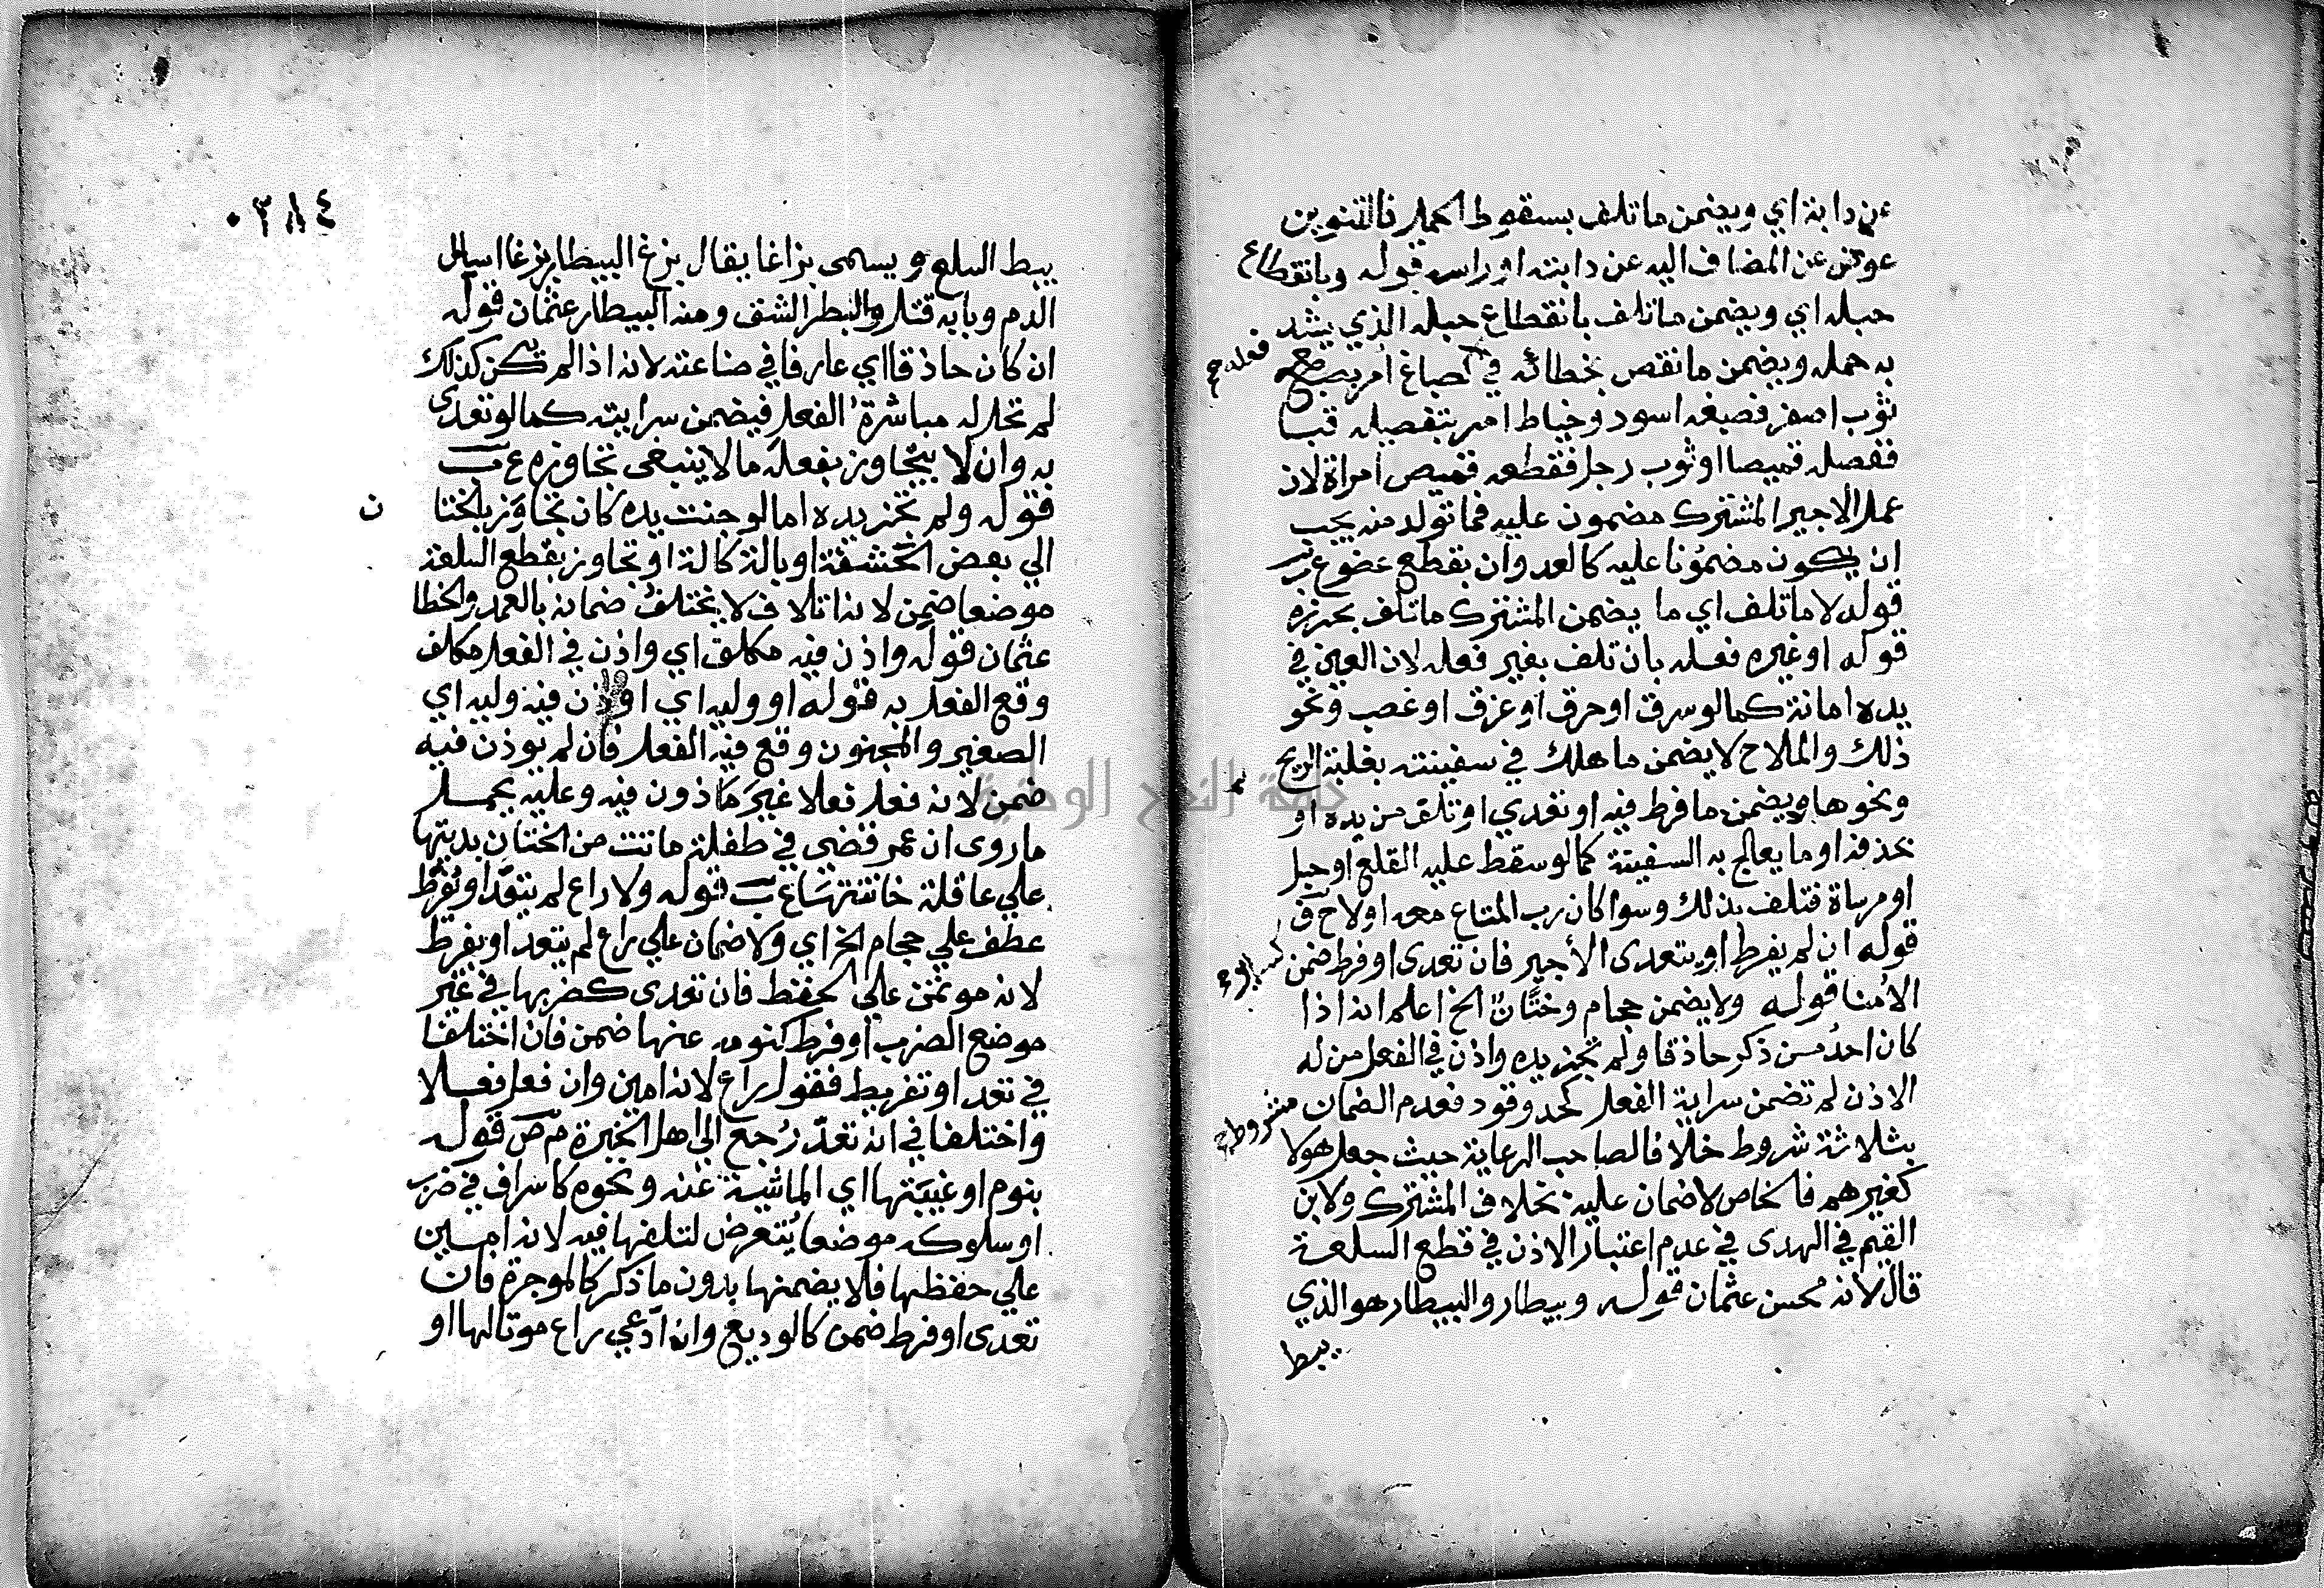 عن دابة اي ويضمن ما تلف بسقوط الحمل فالتنوين
عوض عن المضاف اليه عن دابته او راسه قوله وبانقطاع
حبله اي ويضمن ما تلف بانقطاع حبله الذي يشد
به حمله ويضمن ما نقص بخطائه في فعله كصباغ امر بصبغ
ثوب اصفر فصبغه اسود وخياط امر بتفصيله قبا
ففصله قميصا او ثوب رجل فقطعه قميص امراة لان
عمل الاجير المشترك مضمون عليه فما تولد منه يجب
ان يكون مضمونا عليه كالعدوان بقطع عضو ع
قوله لا ما تلف اي ما يضمن المشترك ما تلف بحرزه
قوله او غيره فعله بان تلف بغير فعله لان العين في
يده امانة كما لو سرق او حرق او غرق او غصب ونحو
ذلك والملاح لا يضمن ما هلك في سفينته بغلبة الريح
ونحوها ويضمن ما فرط فيه او تعدي او تلف من يده او
بحذفه او ما يعالج به السفينة كما لو سقط عليه القلع او حبل
او مرساة فتلف بذلك وسوا كان رب المتاع معه او لا ح ق
قوله ان لم يفرط او يتعدى الأجير فان تعدى او فرط ضمن كساير
الأمنا قوله ولا يضمن حجام وختان الخ اعلم انه اذا
كان احد من ذكر حاذقا ولم تجن يده واذن في الفعل من له
الاذن لم تضمن سراية الفعل كحد وقود فعدم الضمان مشروط
بثلاثة شروط خلافا لصاحب الرعاية حيث جعل هولا
كغيرهم فالخاص لا ضمان عليه بخلاف المشترك ولابن
القيم في الهدى في عدم اعتبار الاذن في قطع السلعة
قال لأنه محسن عثمان قوله وبيطار والبيطار هو الذي
يبط
٠٣٨٤
يبط السلع ويسمى بزاغا يقال بزغ البيطار بزغا اسال
الدم وبابه قتل والبطر الشق ومنه البيطار عثمان قوله
ان كان حاذقا اي عارفا في صناعته لانه اذا لم يكن كذلك
لم تحل له مباشرة الفعل فيضمن سرايته كما لو تعدى
به وان لا يتجاوز بفعله ما لا ينبغى تجاوزه ع ب
قوله ولم تجن يده اما لو جنت يده كان تجاوز بالختان
الي بعض الحشفة او بالة كالة او تجاوز بقطع السلعة
موضعها ضمن لانه اتلاف لا يختلف ضمانه بالعمد والخطا
عثمان قوله واذن فيه مكلف اي واذن في الفعل مكلف
وقع الفعل به قوله او وليه اي او اذن فيه وليه اي
الصغير والمجنون وقع فيه الفعل فان لم يوذن فيه
ضمن لانه فعل فعلا غير ماذون فيه وعليه يحمل
ما روى ان عمر قضي في طفلة ماتت من الختان بديتها
علي عاقلة خاتنتها ع ب قوله ولا راع لم يتعد او يفرط
عطف علي حجام الخ اي ولا ضمان علي راع لم يتعد او يفرط
لانه موتمن علي الحفظ فان تعدى كضربها في غير
موضع الضرب او فرط كنومه عنها ضمن فان اختلفا
في تعد او تفريط فقول راع لانه امين وان فعل فعلا
واختلفا في انه تعد رجع الى اهل الخبرة م ص قوله
بنوم او غيبتها اي الماشية عنه ونحوه كاسراف في ضرب
او سلوكه موضعا يتعرض لتلفها فيه لانه امين
علي حفظها فلا يضمنها بدون ما ذكر كالموجرة فان
تعدى او فرط ضمن كالوديع وان ادعي راع موتا لها او